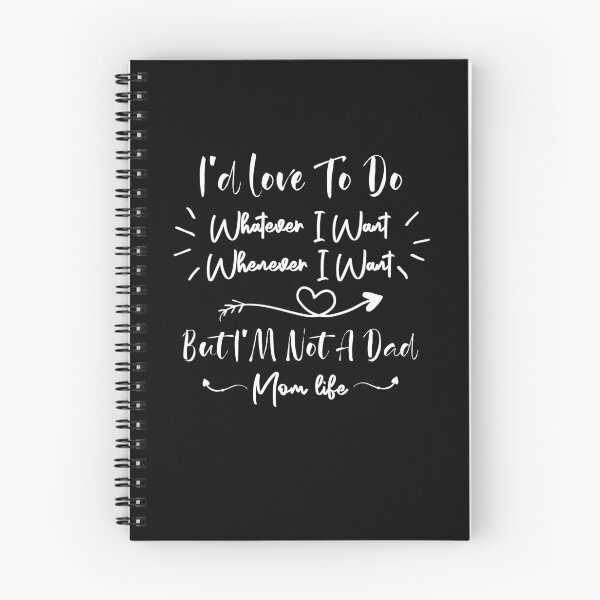 I'd Love To Do
Whatever I Want
Whenever I Want
But I'M Not A Dad
Mom life